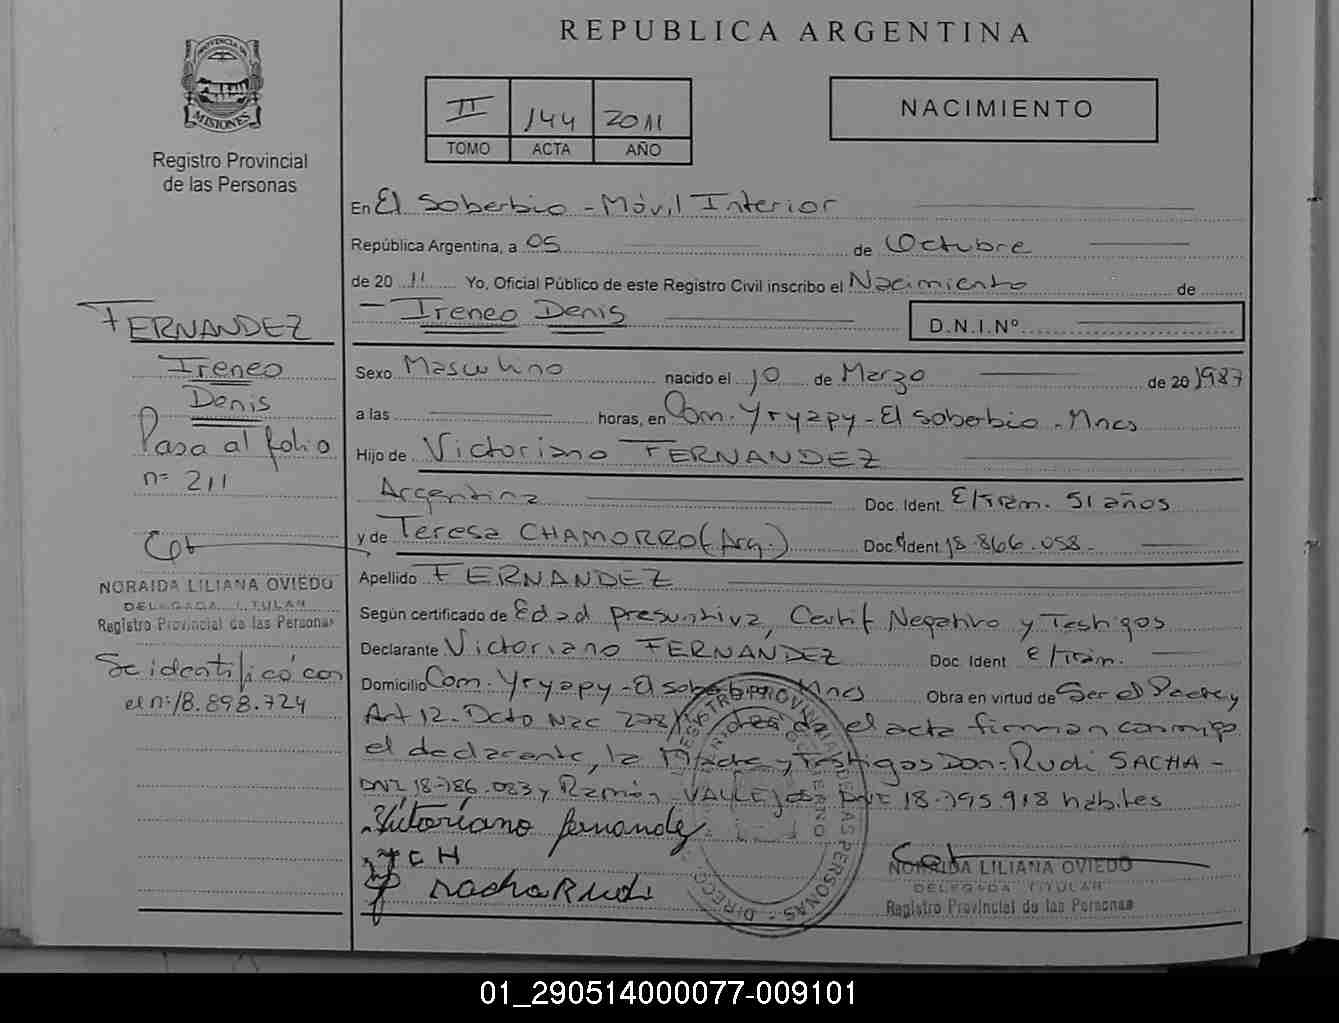 REPUBLICA ARGENTINA
PROVINCIA DE
MISIONES
Registro Provincial
de las Personas
II 144 2011
TOMO ACTA AÑO
NACIMIENTO
En El Soberbio - Móvil Interior
República Argentina, a 05 de Octubre
de 20 11 Yo, Oficial Público de este Registro Civil inscribo el Nacimiento de
- Ireneo Denis
D.N.I.Nº
FERNANDEZ
Ireneo
Denis
Pasa al folio
nº 211
NORAIDA LILIANA OVIEDO
DELEGADA TITULAR
Registro Provincial de las Personas
Se identificó con
el nº 18.898.724
Sexo Masculino nacido el 10 de Marzo de 20 1987
a las horas, en Com. Yryapy - El Soberbio - Mnes
Hijo de Victoriano FERNANDEZ
Argentina Doc. Ident. E/trám. 51 años
y de Teresa CHAMORRO (Arg.) Doc. Ident 18.866.058.-
Apellido FERNANDEZ
Según certificado de Edad presuntiva, Certif Negativo y Testigos
Declarante Victoriano FERNANDEZ Doc. Ident E/trám.
Domicilio Com. Yryapy - El Soberbio Mnes Obra en virtud de Ser el Padre y
Art 12. Dcto Nac 278/ el acta firman conmigo
el declarante, la Madre y Testigos Don: Rudi SACHA -
DNI 18.786.083 y Ramón VALLEJOS DNI 18.795.918 hábiles
Vitoriano fernandez
T C H
sacha Rudi
NORAIDA LILIANA OVIEDO
DELEGADA TITULAR
Registro Provincial de las Personas
01_290514000077-009101